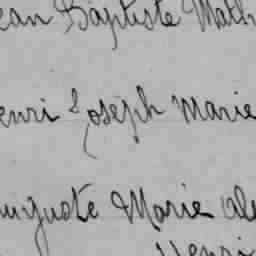 ean Baptiste Math
enri Joseph Marie
uguste Marie Ale
Henri